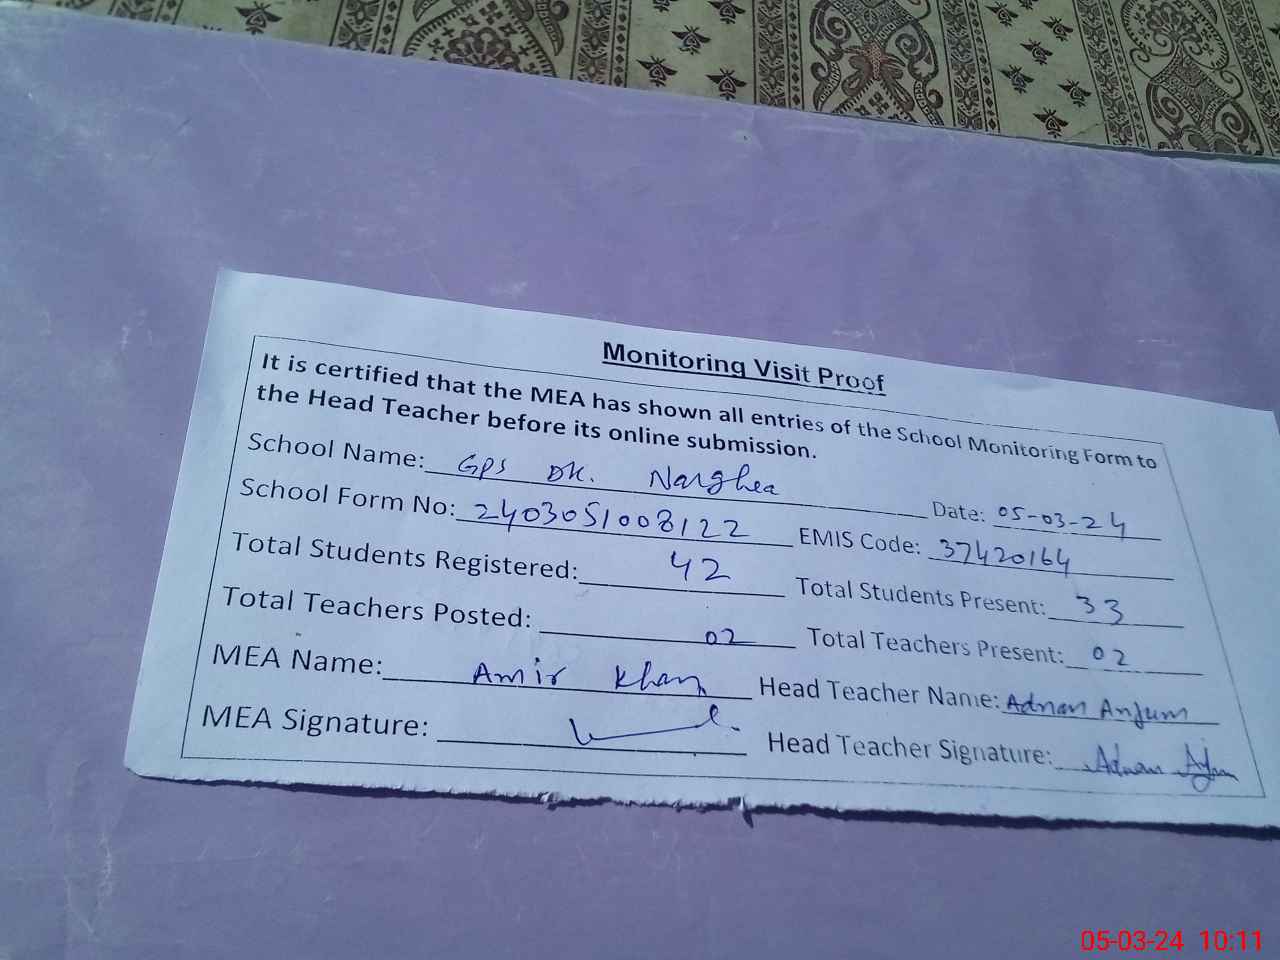 Monitoring Visit Proof
It is certified that the MEA has shown all entries of the School Monitoring Form to
the Head Teacher before its online submission.
School Name: GPS DK. Narghea Date: 05-03-24
School Form No: 2403051008122 EMIS Code: 37420164
Total Students Registered: 42 Total Students Present: 33
Total Teachers Posted: 02 Total Teachers Present: 02
MEA Name: Amir Khan Head Teacher Name: Adnan Anjum
MEA Signature: Head Teacher Signature: Adnan Anjum
05-03-24 10:11